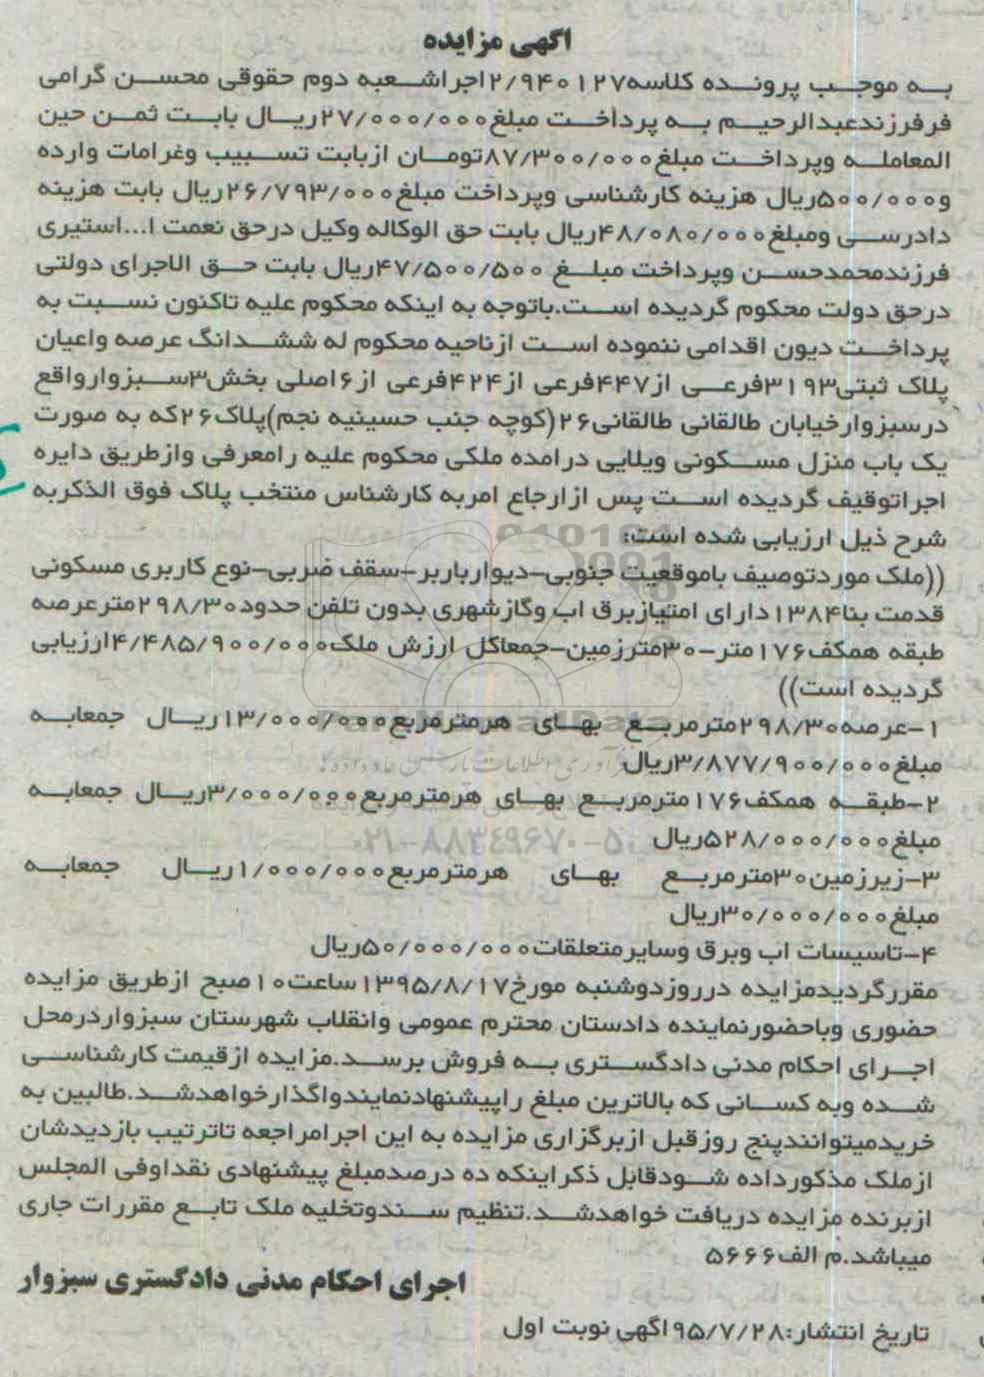 اگهی مزایده
به موجب پرونده کلاسه۲/۹۴۰۱۲۷اجراشعبه دوم حقوقی محسن گرامی
فرفرزندعبدالرحیم به پرداخت مبلغ۲۷/۰۰۰/۰۰۰ریال بابت ثمن حین
المعامله وپرداخت مبلغ۸۷/۳۰۰/۰۰۰تومان ازبابت تسبیب وغرامات وارده
و۵۰۰/۰۰۰ریال هزینه کارشناسی وپرداخت مبلغ۲۶/۷۹۳/۰۰۰ریال بابت هزینه
دادرسی ومبلغ۴۸/۰۸۰/۰۰۰ریال بابت حق الوکاله وکیل درحق نعمت ا...استیری
فرزندمحمدحسن وپرداخت مبلغ ۴۷/۵۰۰/۵۰۰ریال بابت حق الاجرای دولتی
درحق دولت محکوم گردیده است.باتوجه به اینکه محکوم علیه تاکنون نسبت به
پرداخت دیون اقدامی ننموده است ازناحیه محکوم له ششدانگ عرصه واعیان
پلاک ثبتی۳۱۹۳فرعی از۴۴۷فرعی از۴۲۴فرعی از۶اصلی بخش۳سبزوارواقع
درسبزوارخیابان طالقانی طالقانی۲۶(کوچه جنب حسینیه نجم)پلاک۲۶که به صورت
یک باب منزل مسکونی ویلایی درامده ملکی محکوم علیه رامعرفی وازطریق دایره
اجراتوقیف گردیده است پس ازارجاع امربه کارشناس منتخب پلاک فوق الذکربه
شرح ذیل ارزیابی شده است:
((ملک موردتوصیف باموقعیت جنوبی-دیوارباربر-سقف ضربی-نوع کاربری مسکونی
قدمت بنا۱۳۸۴دارای امتیازبرق اب وگازشهری بدون تلفن حدود۲۹۸/۳۰مترعرصه
طبقه همکف۱۷۶متر-۳۰مترزمین-جمعاکل ارزش ملک۴/۴۸۵/۹۰۰/۰۰۰ارزیابی
گردیده است))
۱-عرصه۲۹۸/۳۰مترمربع بهای هرمترمربع۱۳/۰۰۰/۰۰۰ریال جمعابه
مبلغ۳/۸۷۷/۹۰۰/۰۰۰ریال
۲-طبقه همکف۱۷۶مترمربع بهای هرمترمربع۳/۰۰۰/۰۰۰ریال جمعابه
مبلغ۵۲۸/۰۰۰/۰۰۰ریال
۰۲۱-۸۸۳۴۹۶۷۰-۵
۳-زیرزمین۳۰مترمربع بهای هرمترمربع۱/۰۰۰/۰۰۰ریال جمعابه
مبلغ۳۰/۰۰۰/۰۰۰ریال
۴-تاسیسات اب وبرق وسایرمتعلقات۵۰/۰۰۰/۰۰۰ریال
مقررگردیدمزایده درروزدوشنبه مورخ۱۳۹۵/۸/۱۷ساعت۱۰صبح ازطریق مزایده
حضوری وباحضورنماینده دادستان محترم عمومی وانقلاب شهرستان سبزواردرمحل
اجرای احکام مدنی دادگستری به فروش برسد.مزایده ازقیمت کارشناسی
شده وبه کسانی که بالاترین مبلغ راپیشنهادنمایندواگذارخواهدشد.طالبین به
خریدمیتوانندپنج روزقبل ازبرگزاری مزایده به این اجرامراجعه تاترتیب بازدیدشان
ازملک مذکورداده شودقابل ذکراینکه ده درصدمبلغ پیشنهادی نقداوفی المجلس
ازبرنده مزایده دریافت خواهدشد.تنظیم سندوتخلیه ملک تابع مقررات جاری
میباشد.م الف۵۶۶۶
اجرای احکام مدنی دادگستری سبزوار
تاریخ انتشار:۹۵/۷/۲۸اگهی نوبت اول